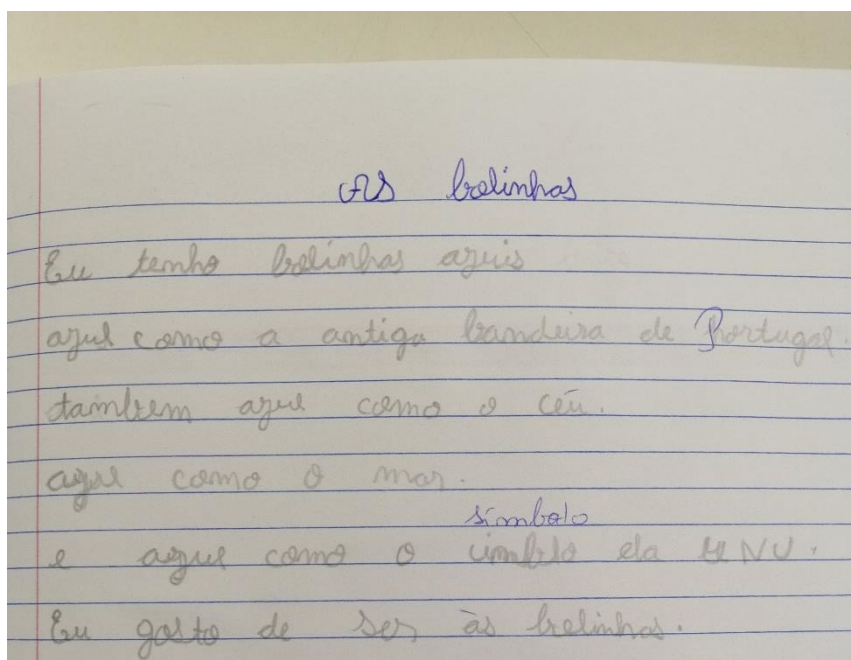 As bolinhas
Eu tenho bolinhas azuis
azul como a antiga bandeira de Portugal.
tambem azul como o céu.
azul como o mar.
símbolo
e azul como o da UNU.
Eu gosto de ser às bolinhas.